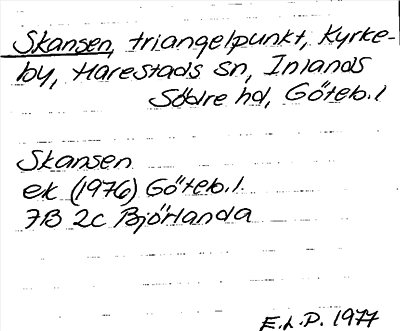 Skansen, triangelpunkt, Kyrke-
by, Harestads sn, Inlands
Södre hd, Göteb. l
Skansen
ek (1976) Göteb. l.
7B 2c Björlanda
E.L.P. 1977